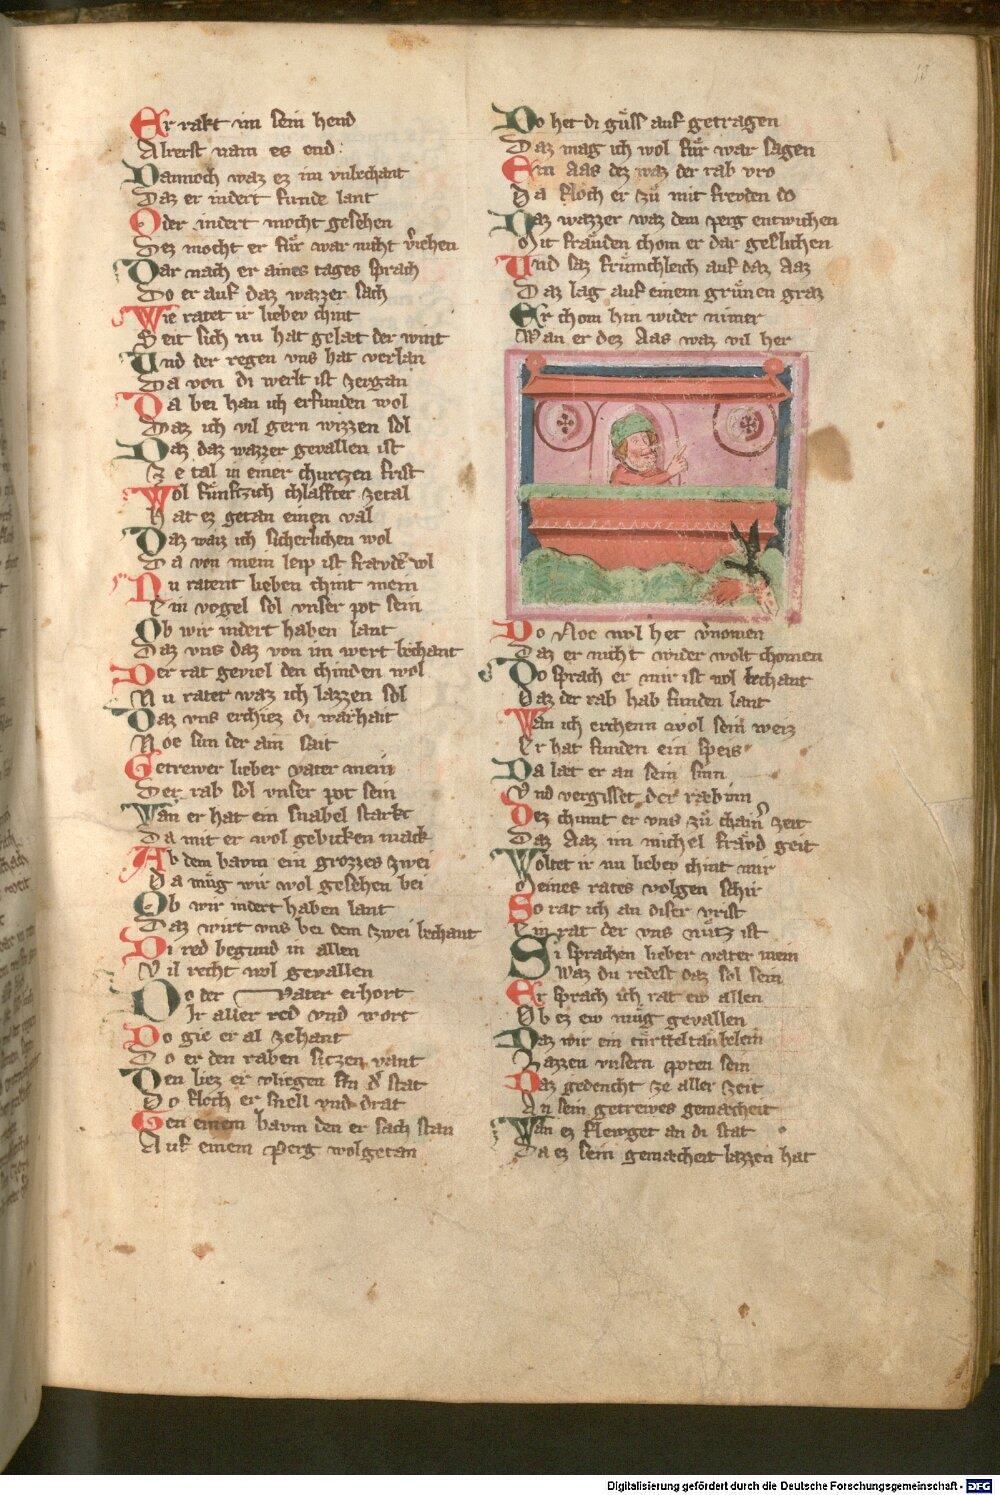 Er rakt im sein hend
Alrerst nam es end
Dannoch waz ez im vnbechant
Daz er indert funde lant
Oder indert mocht gesehen
Dez mocht er für war nicht v̓iehen
Dar nach er aines tages sprach
Do er auf daz wazzer sach
Wie ratet ir lieben chint
Seit sich nu hat gelaet der wint
Vnd der regen vns hat verlan
Da von di werlt ist zergan
Da bei han ich erfunden wol
Daz ich vil gern wizzen sol
Daz daz wazzer gevallen ist
Ze tal in einer churczen frist
Wol fünfczich chlaffter zetal
Hat ez getan einen val
Daz waiz ich sicherlichen wol
Da von mein leip ist fravdē vol
Nu ratent lieben chint mein
Ein vogel sol vnser pot sein
Ob wir indert haben lant
Daz vns daz von im wert bechant
Der rat geviel den chinden wol
Nu ratet waz ich lazzen sol
Daz vns erchiez di warhait
Noe sun der ain sait
Getrewer lieber vater mein
Der rab sol vnser pot sein
Wan er hat ein snabel starkt
Da mit er wol gebicken mack
Ab dem bavm ein grozzes zwei
Da müg wir wol gesehen bei
Ob wir indert haben lant
Daz wirt vns bei dem zwei bechant
Di red begund in allen
Vil recht wol gevallen
Do der vater erhort
Ir aller red vnd wort
Do gie er al zehant
Do er den raben siczen vant
Den liez er vliegen sin d̓ stat
Do floch er snell vnd drat
Gen einem bavm den er sach stan
Auf einem perg wolgetan
10
Do het di güss auf getragen
Daz mag ich wol für war sagen
Ein aas dez waz der rab vro
Da floch er zů mit frevden do
Daz wazzer waz dem perg entwichen
Mit fräuden chom er dar geslichen
Vnd saz frümchleich auf daz Aaz
Daz lag auf einem grünen graz
Er chom hin wider nimer
Wan er dez Aas waz vil her
Do Noe wol het v̓nomen
Daz er nicht wider wolt chomen
Do sprach er mir ist wol bechant
Daz der rab hab funden lant
Wan ich erchenn wol sein weiz
Er hat funden ein speis
Da lat er an sein sinn
Vnd vergisset der ræbinn
Dez chumt er vns zů chain̓ zeit
Daz Aaz im michel fräwd geit
Woltet ir nu lieben chint mir
Meines rates volgen schir
So rat ich an diser vrist
Ein rat der vns nütz ist
Si sprachen lieber vater mein
Waz du redest daz sol sein
Er sprach ich rat ew allen
Ob ez ew müg gevallen
Daz wir ein türtteltaubelein
Lazzen vnsern poten sein
Daz gedencht ze aller zeit
An sein getrewes gemæcheit
Wan ez flewget an di stat
Da ez sein gemæcheit lazzen hat
Digitalisierung gefördert durch die Deutsche Forschungsgemeinschaft - DFG